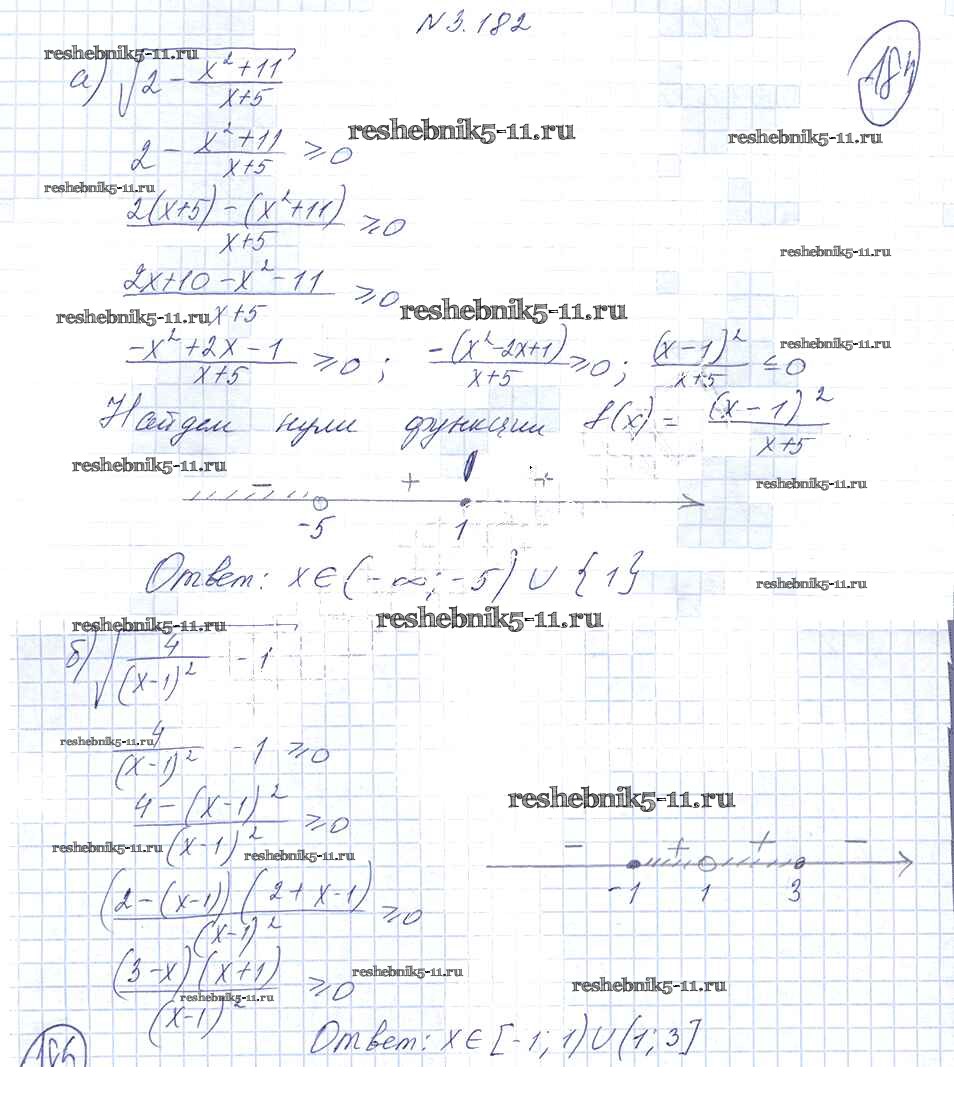 N 3.182
reshebnik5-11.ru
а) √(2 - (x²+11)/(x+5))
18ч
reshebnik5-11.ru
reshebnik5-11.ru
2 - (x²+11)/(x+5) ≥ 0
reshebnik5-11.ru
(2(x+5) - (x²+11))/(x+5) ≥ 0
reshebnik5-11.ru
(2x+10 - x² - 11)/(x+5) ≥ 0
reshebnik5-11.ru
reshebnik5-11.ru
(-x²+2x-1)/(x+5) ≥ 0 ; (-(x²-2x+1))/(x+5) ≥ 0 ; (x-1)²/(x+5) ≤ 0
reshebnik5-11.ru
Найдем нули функции f(x) = (x-1)²/(x+5)
reshebnik5-11.ru
reshebnik5-11.ru
- + +
-5 1
Ответ: x ∈ (-∞; -5) ∪ {1}
reshebnik5-11.ru
reshebnik5-11.ru
reshebnik5-11.ru
б) √(4/(x-1)² - 1)
reshebnik5-11.ru
4/(x-1)² - 1 ≥ 0
reshebnik5-11.ru
(4 - (x-1)²)/(x-1)² ≥ 0
reshebnik5-11.ru
reshebnik5-11.ru
- + + -
-1 1 3
((2-(x-1))(2+x-1))/(x-1)² ≥ 0
reshebnik5-11.ru
((3-x)(x+1))/(x-1)² ≥ 0
reshebnik5-11.ru
reshebnik5-11.ru
Ответ: x ∈ [-1; 1) ∪ (1; 3]